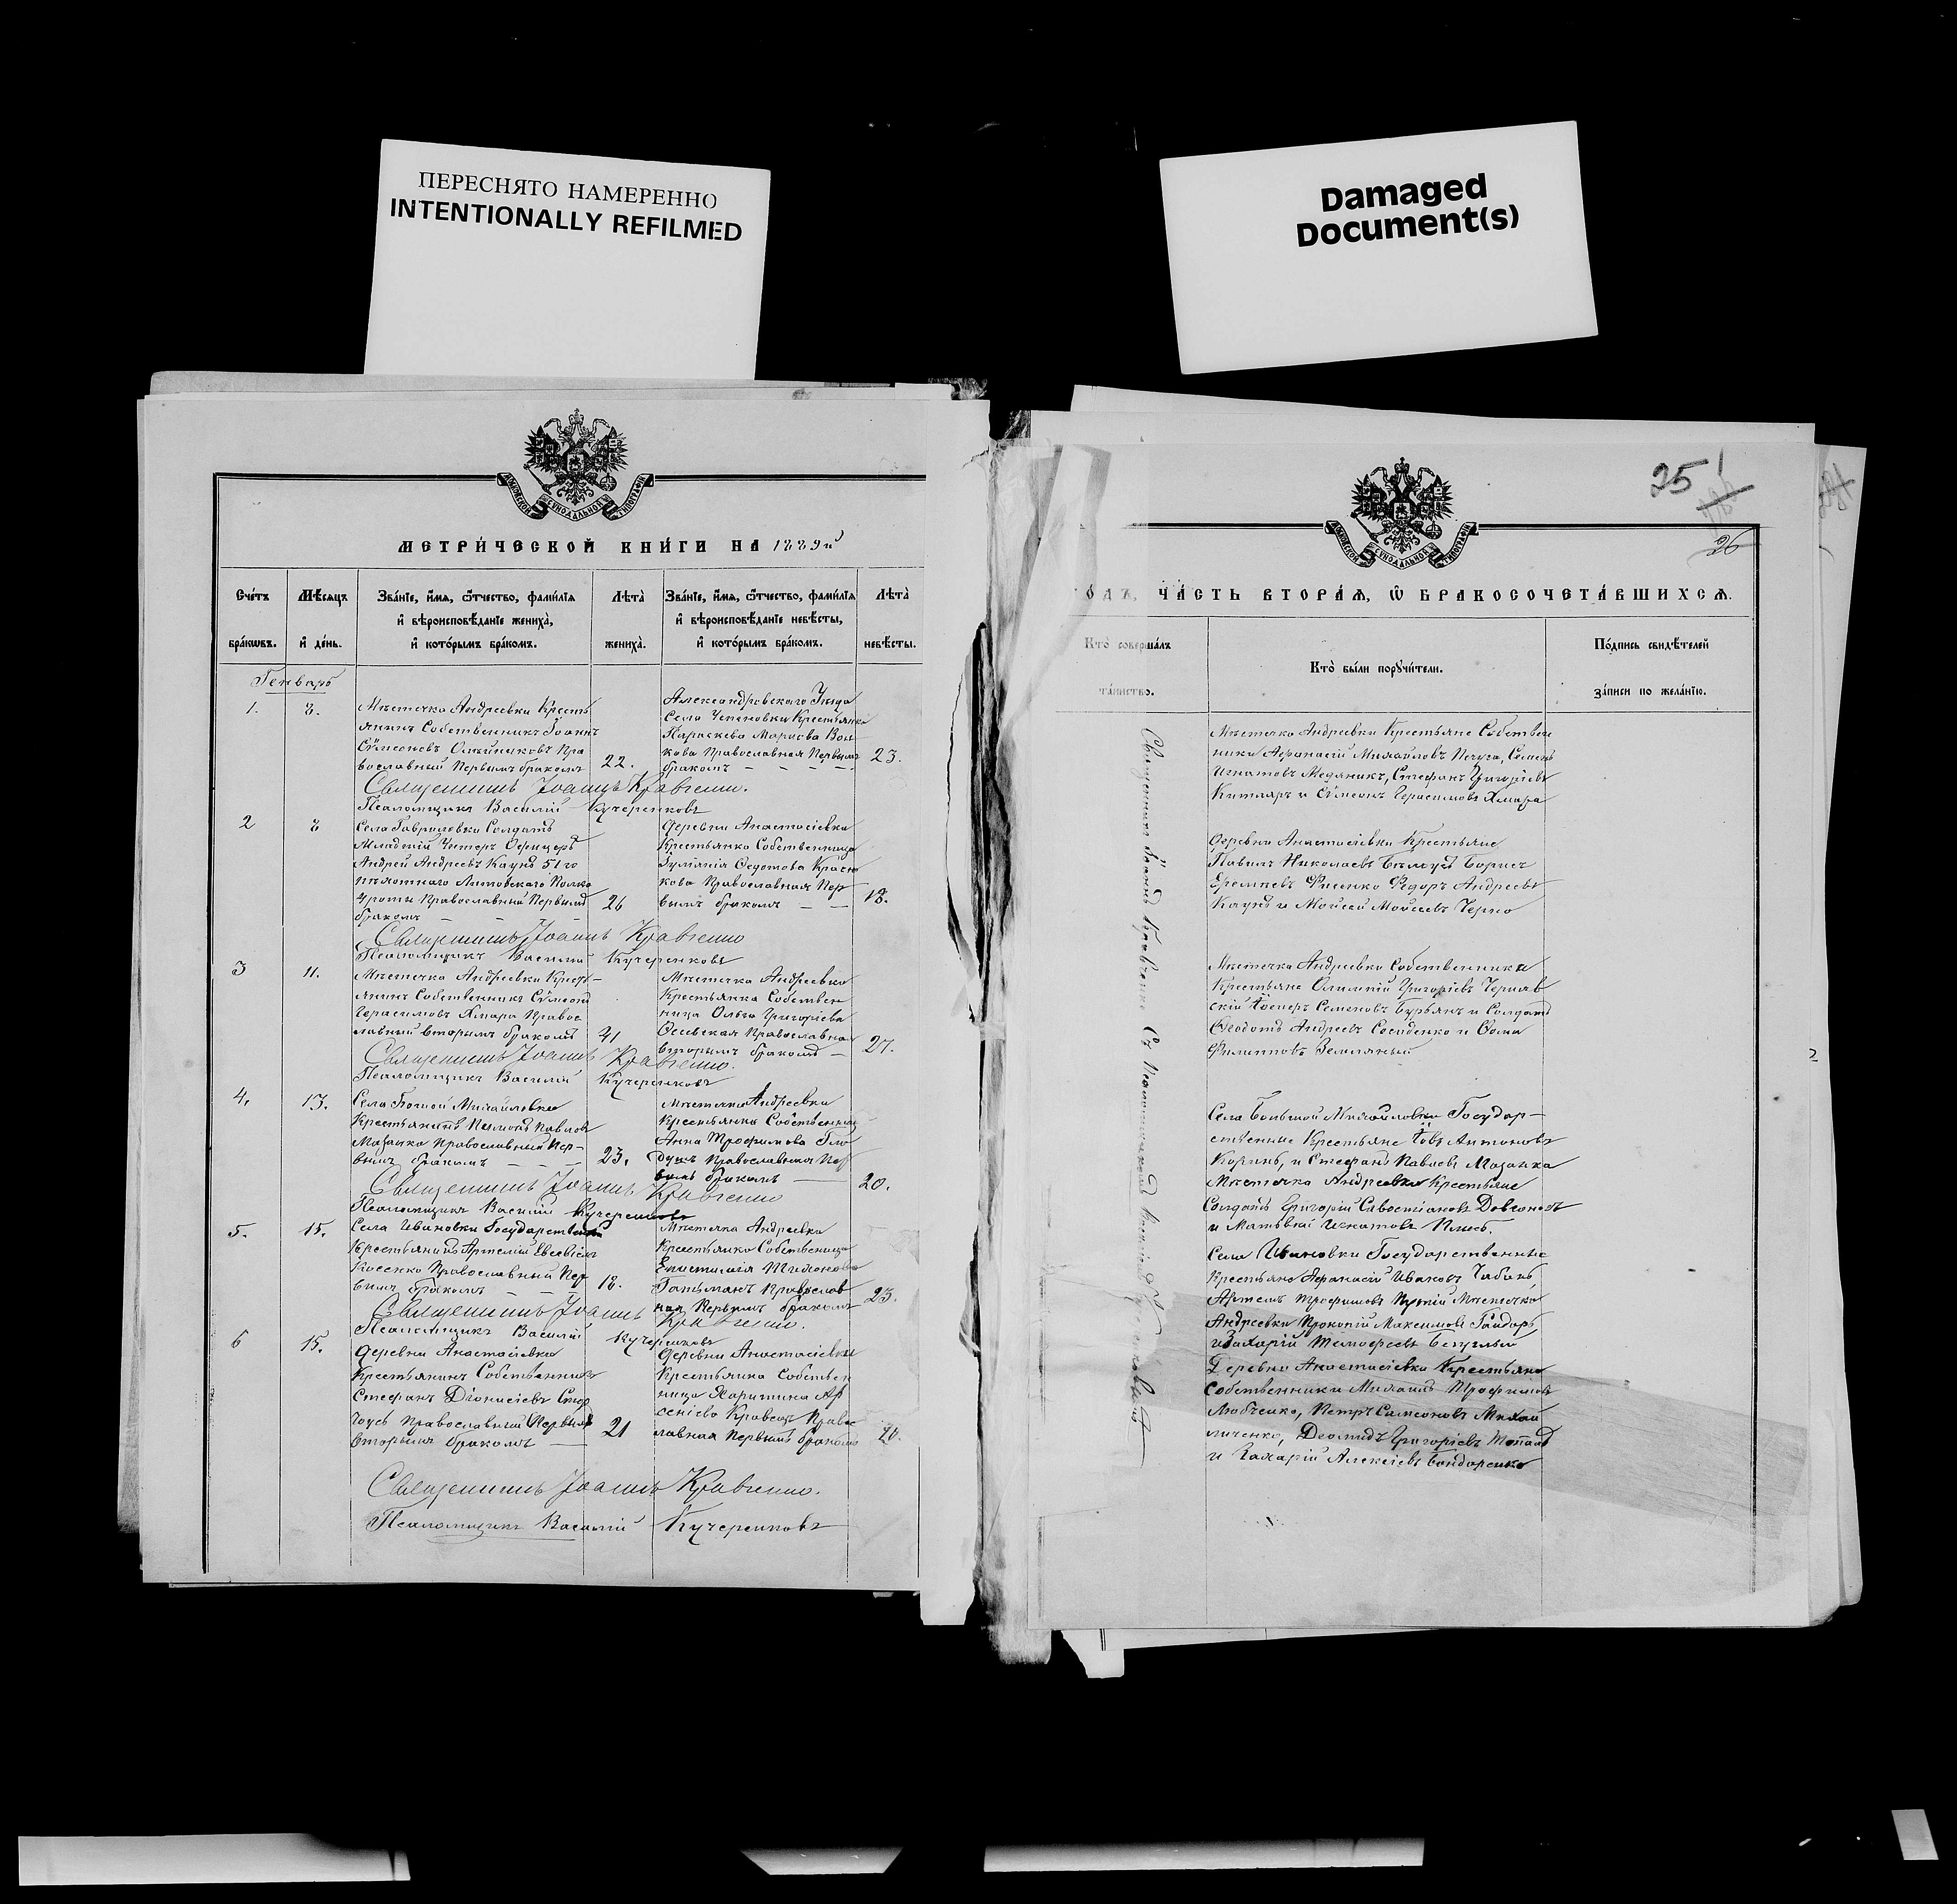 ПЕРЕСНЯТО НАМЕРЕННО
INTENTIONALLY REFILMED
Damaged
Document(s)
МОСКОВСКОЙ СѴНОДАЛЬНОЙ ТИПОГРАФІИ
МЕТРИ́ЧЕСКОЙ КНИ́ГИ НА 1889й
Сче́тъ
бра́кωвъ.
Мѣ́сяцъ
и҆ де́нь.
Зва́нїе, и҆́мя, ѻ҆́тчество, фамѝлїя
и҆ вѣроисповѣ́данїе жениха̀,
и҆ кото́рымъ бра́комъ.
Лѣта̀
жениха̀.
Зва́нїе, и҆́мя, ѻ҆́тчество, фамѝлїя
и҆ вѣроисповѣ́данїе невѣ́сты,
и҆ кото́рымъ бра́комъ.
Лѣта̀
невѣ́сты.
Генварь
1.
8.
Мѣстечка Андреевки Кресть
янинъ Собственникъ Іоаннъ
Сѵмеоновъ Олейниковъ Пра
вославный Первымъ бракомъ
22.
Александровскаго Уезда
Села Крестьянка
Параскева Маркова Вол
кова Православная Первымъ
бракомъ
23.
Священникъ Іоаннъ Кравченко.
Псаломщикъ Василій Кучеренковъ
2
8
Села Гавриловки Солдатъ
Младшій Унтеръ Офицеръ
Андрей Андреевъ Каунъ 51го
пѣхотнаго Литовскаго Полка
роты Православный Первымъ
бракомъ
26
Деревни Анастасіевки
Крестьянка Собственница
Іуліанія Федотова Красно
кова Православная Пер
вымъ бракомъ
18.
Священникъ Іоаннъ Кравченко
Псаломщикъ Василій Кучеренковъ
3
11.
Мѣстечка Андреевки Крест-
янинъ Собственникъ Сѵмеонъ
Герасимовъ Хмара Правос
лавный вторымъ бракомъ
41
Мѣстечка Андреевки
Крестьянка Собствен
ница Ольга Григоріева
Православная
вторымъ бракомъ
27.
Священникъ Іоаннъ Кравченко.
Псаломщикъ Василій Кучеренковъ
4.
13.
Села Михайловки
Крестьянинъ Павловъ
Мазанко Православный Пер-
вымъ бракомъ
23.
Мѣстечка Андреевки
Крестьянка Собственница
Анна Трофимова
Православная Пер
вымъ бракомъ
20.
Священникъ Іоаннъ Кравченко
Псаломщикъ Василій Кучеренковъ
5.
15.
Села Ивановки Государственный
Крестьянинъ Артемій Евсевіевъ
Косенко Православный Пер
вымъ бракомъ
18.
Мѣстечка Андреевки
Крестьянка Собственница
Тимонова
Гатьманъ Православ
ная Первымъ бракомъ
23.
Священникъ Іоаннъ Кравченко.
Псаломщикъ Василій Кучеренковъ
6
15.
Деревни Анастасіевки
Крестьянинъ Собственникъ
Стефанъ Діонисіевъ
Православный Первый
вторымъ бракомъ
21
Деревни Анастасіевки
Крестьянка Собствен
ница Харитина Ар
сеніева Кравецъ Правос
лавная Первымъ бракомъ
20.
Священникъ Іоаннъ Кравченко.
Псаломщикъ Василій Кучеренковъ
25
26
МОСКОВСКОЙ СѴНОДАЛЬНОЙ ТИПОГРАФІИ
ОДЪ, ЧА́СТЬ ВТОРА́Я, Ѡ БРАКОСОЧЕТА́ВШИХСЯ.
Кто̀ соверша́лъ
та́инство.
Кто̀ бы́ли порꙋчи́тели.
По́дпись свидѣ́телей
за́писи по жела́нїю.
Священникъ Іоаннъ Кравченко Съ Псаломщикомъ Василіемъ Кучеренковымъ
Мѣстечка Андреевки Крестьяне Собствен
ники Афанасій Михайловъ Семенъ
Игнатовъ Медяникъ, Стефанъ Григоріевъ
Китляръ и Сѵмеонъ Герасимовъ Хмара
Деревни Анастасіевки Крестьяне
Павелъ Николаевъ Бѣлоусъ Борисъ
Еремѣевъ Фисенко Федоръ Андреевъ
Каунъ и Моисей Моисеевъ Черно
Мѣстечка Андреевки Собственники
Крестьяне Олимпій Григоріевъ Черняв
скій Іосиеръ Семеновъ Бурьянъ и Солдатъ
Феодотъ Андреевъ Сосиденко и Фома
Филипповъ Земляный
Села Большой Михайловки Государ-
ственные Крестьяне Іовъ Антоновъ
Коринь, и Стефанъ Павловъ Мазанка
Мѣстечка Андреевки Крестьяне
Солдатъ Григорій Савостіановъ
и Матьвѣй Игнатовъ Плисъ.
Села Ивановки Государственные
Крестьяне Афанасій Ивановъ Чабань
Артемъ Трофимовъ Мѣстечка
Андреевки Прокопій Максимовъ
и Захарій Тимофеевъ
Деревни Анастасіевки Крестьяне
Собственники Михаилъ Трофимовъ
Любченко, Петръ Симеоновъ Михай
личенко, Діомидъ Григоріевъ
и Захарій Алексіевъ Бондаренко
2